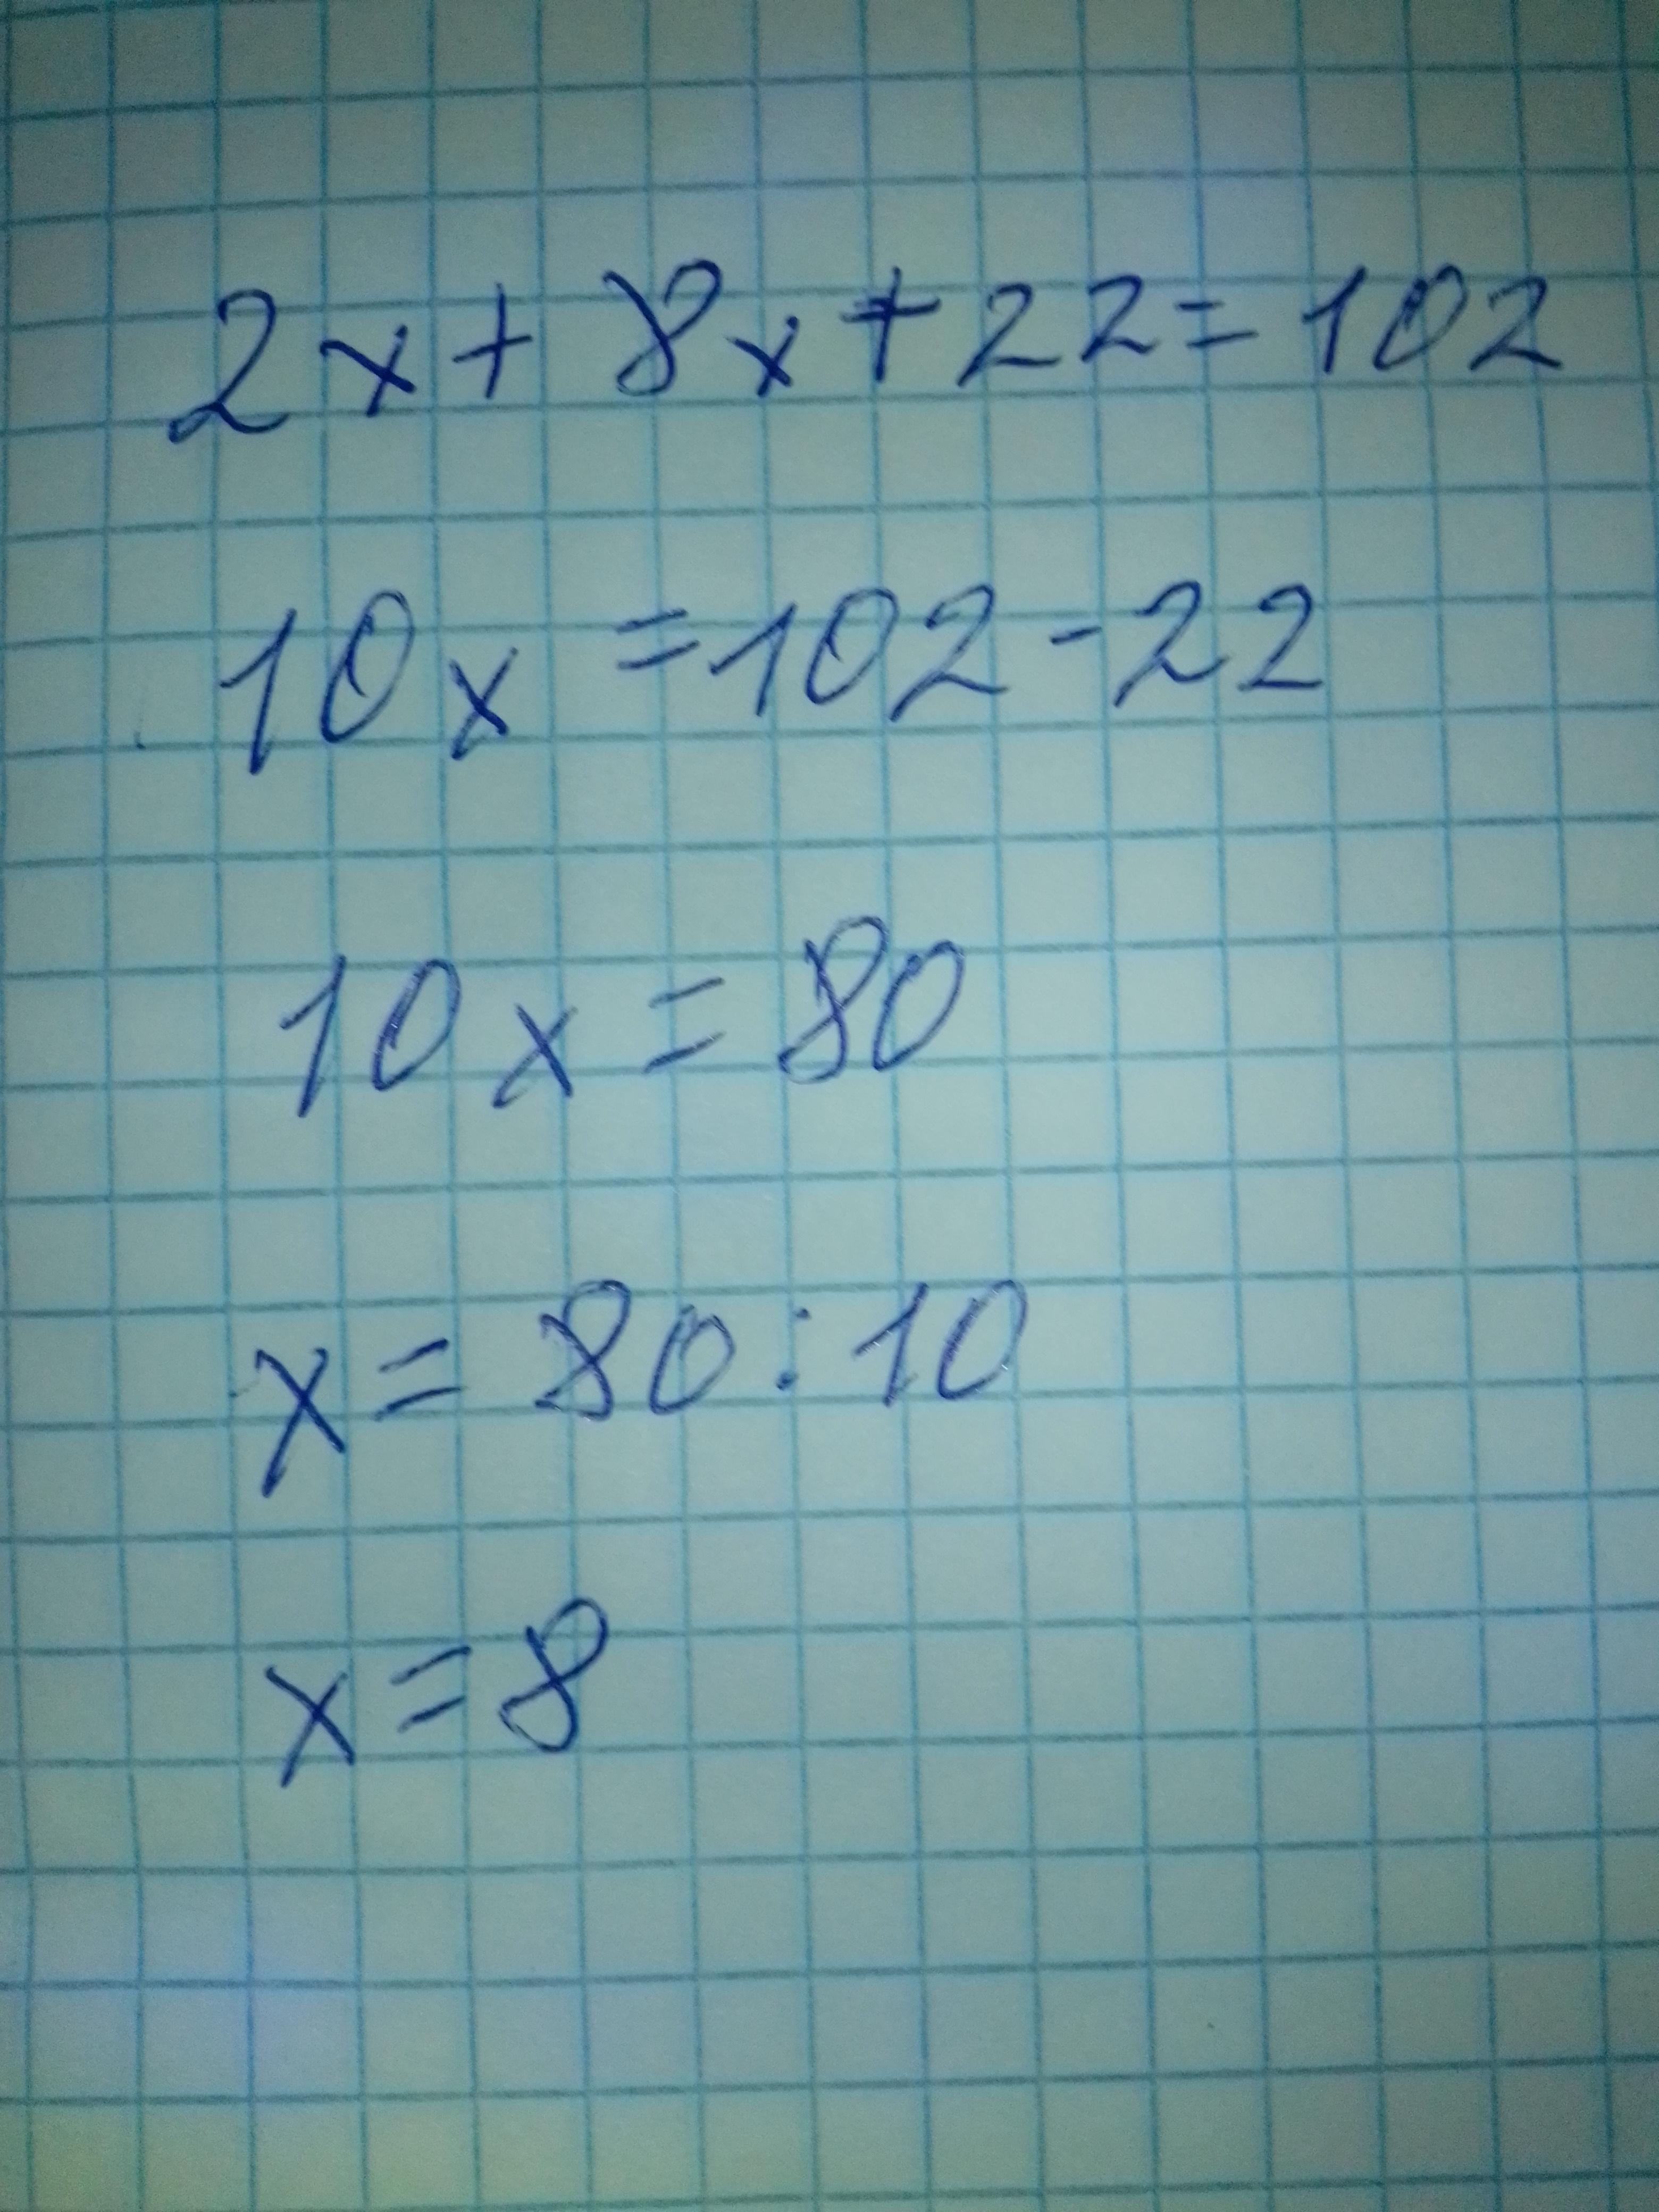 2x+8x+22=102
10x=102-22
10x=80
x=80:10
x=8